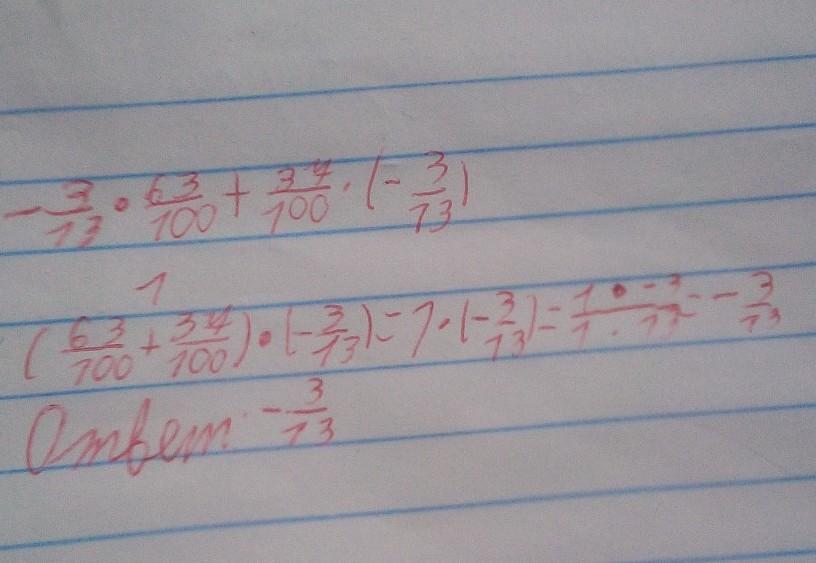 -3/13 • 63/100 + 37/100 · (-3/13)
1
(63/100 + 37/100) • (-3/13) = 1 · (-3/13) = 1 • -3/1 · 13 = -3/13
Ответ: -3/13